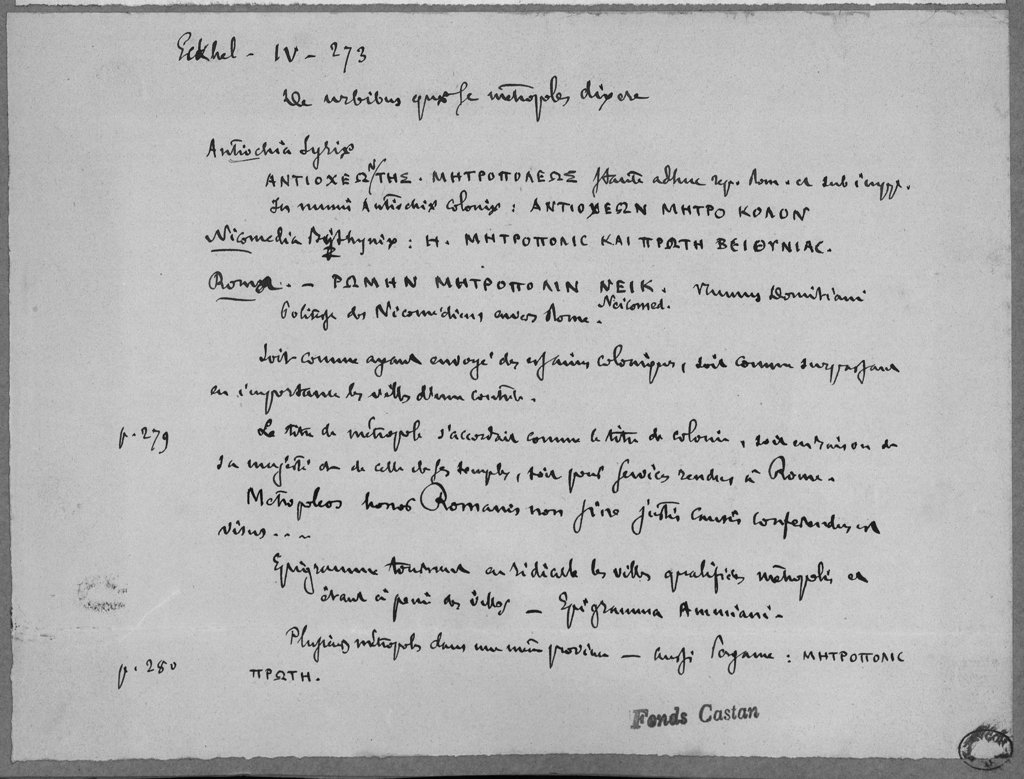 Eckhel - IV - 273
De urbibus quæ se métropoles dixere
Antiochia Syriæ
ΑΝΤΙΟΧΕΩΝ ΤΗΣ. ΜΗΤΡΟΠΟΛΕΩΣ stante adhuc rep. Rom. et sub
In numis Antiochiæ coloniæ : ΑΝΤΙΟΧΕΩΝ ΜΗΤΡΟ ΚΟΛΟΝ
Nicomedia Bythyniæ : Η. ΜΗΤΡΟΠΟΛΙC ΚΑΙ ΠΡΩΤΗ ΒΕΙΘΥΝΙΑC.
Roma. — ΡΩΜΗΝ ΜΗΤΡΟΠΟΛΙΝ ΝΕΙΚ. Numus Domitiani
Neicomed.
Politesse des Nicomédiens envers Rome.
Soit comme ayant envoyé des essaims coloniques, soit comme surpassant
en importance les villes d'une contrée.
p. 279
Le titre de métropole s'accordait comme le titre de colonie, soit en raison de
sa majesté ou de celle de ses temples, soit pour services rendus à Rome.
Metropoleos honos Romanis non sine justis causis conferendus est
visus....
Epigramme tournant en ridicule les villes qualifiées métropolis et
étant à peine des villes — Epigramma Ammiani.
p. 280
Plusieurs métropoles dans une même province — aussi Pergame : ΜΗΤΡΟΠΟΛΙC
ΠΡΩΤΗ.
Fonds Castan